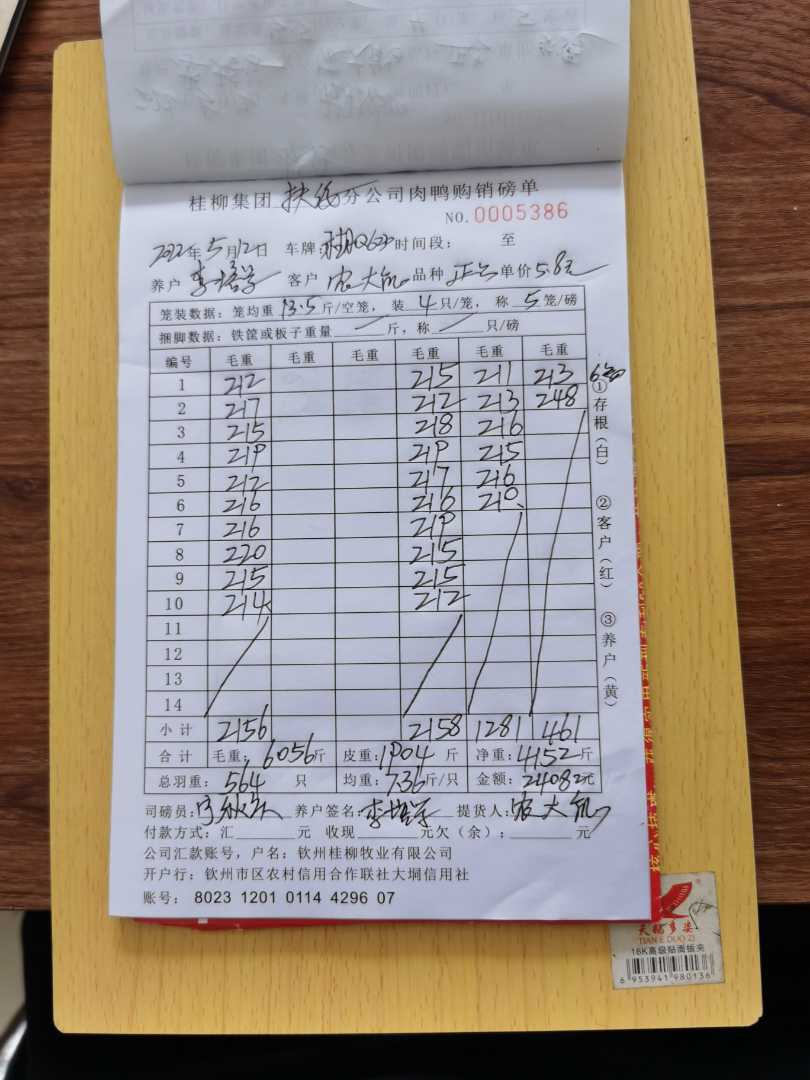 桂柳集团 扶绥 分公司肉鸭购销磅单
NO.0005386
2022年5月12日 车牌 时间段: 至
养户 李培学 客户 农大 品种 正 单价 5.8元
笼装数据: 笼均重 13.5 斤/空笼, 装 4 只/笼, 称 5 笼/磅
捆脚数据: 铁筐或板子重量 / 斤, 称 / 只/磅
编号 毛重 毛重 毛重 毛重 毛重 毛重
1 212 215 211 213 6笼
2 217 212 213 248
3 215 218 216
4 219 219 215
5 212 217 216
6 216 216 210
7 216 219
8 220 215
9 215 215
10 214 212
11
12
13
14
小计 2156 2158 1281 461
合计 毛重: 6056斤 皮重: 1904 斤 净重: 4152斤
总羽重: 564 只 均重: 736斤/只 金额: 24082元
司磅员: 养户签名: 李培学 提货人: 农大
付款方式: 汇 元 收现 元欠(余): 元
公司汇款账号, 户名: 钦州桂柳牧业有限公司
开户行: 钦州市区农村信用合作联社大垌信用社
账号: 8023 1201 0114 4296 07
①存根(白) ②客户(红) ③养户(黄)
天鹅多姿
TIAN E DUO ZI
16K高级贴面板夹
6 953941 980136